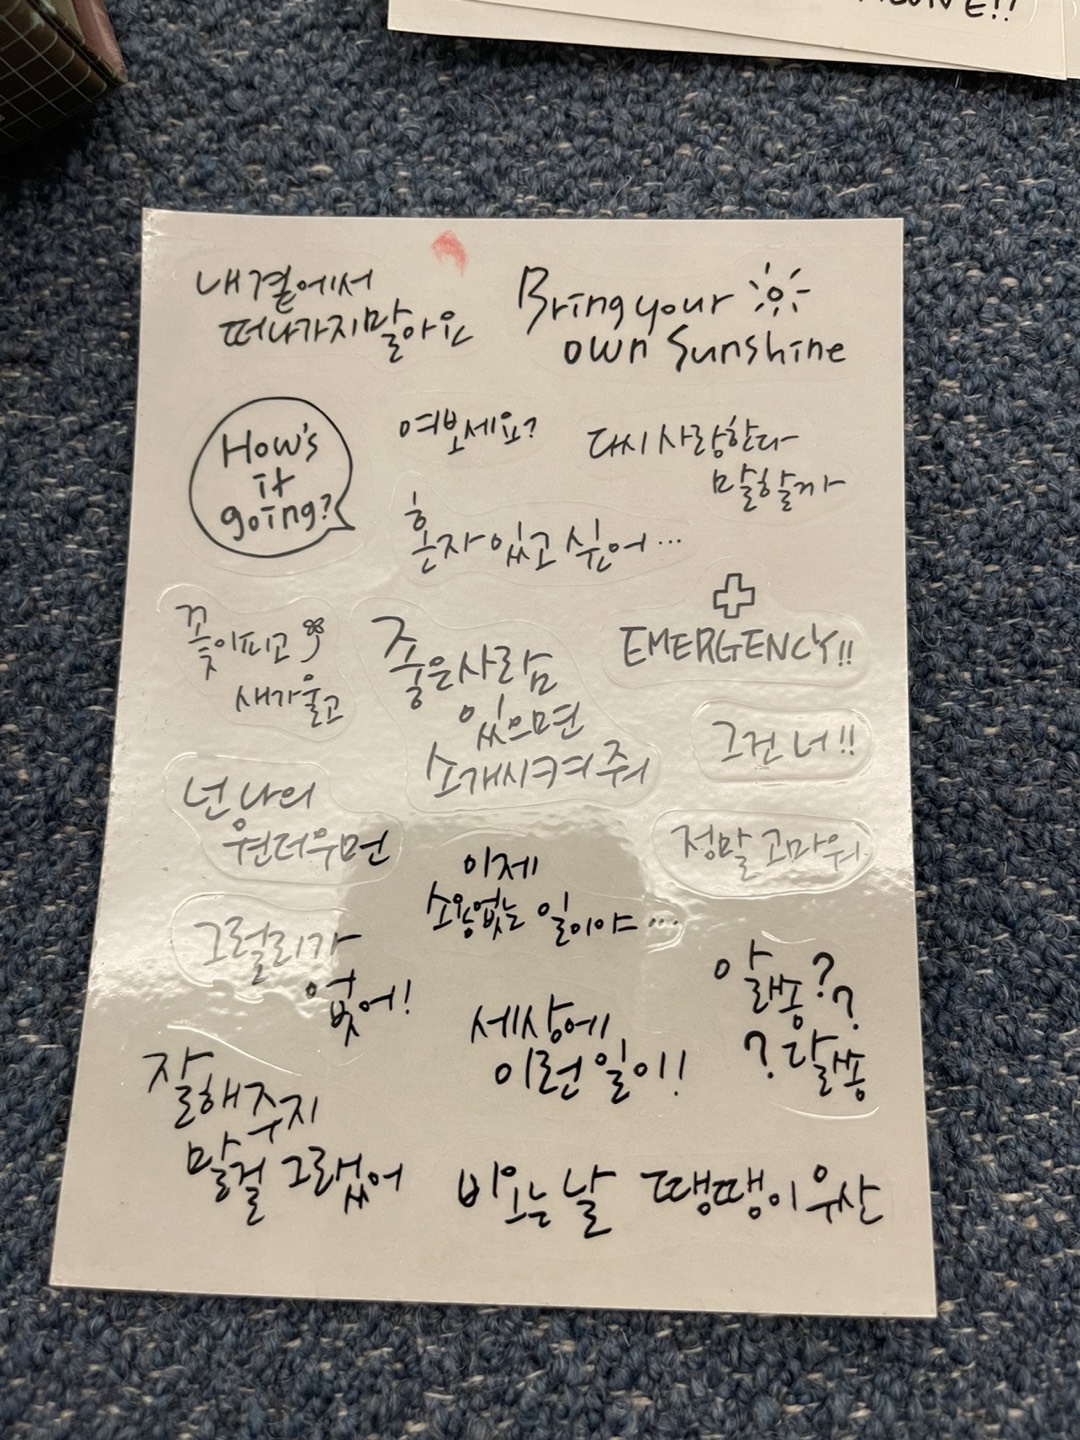 내 곁에서
떠나가지 말아요
Bring your
own Sunshine
How's
it
going?
여보세요?
다시 사랑한다
말할까
혼자 있고 싶어...
EMERGENCY!!
꽃이피고
새가울고
좋은사람
있으면
소개시켜 줘
그건 너!!
넌 나의
원더우먼
정말 고마워
이제
소용없는 일이야...
그럴리가
없어!
알쏭??
?달쏭
세상에
이런일이!
잘해주지
말걸 그랬어
비오는 날 땡땡이 우산